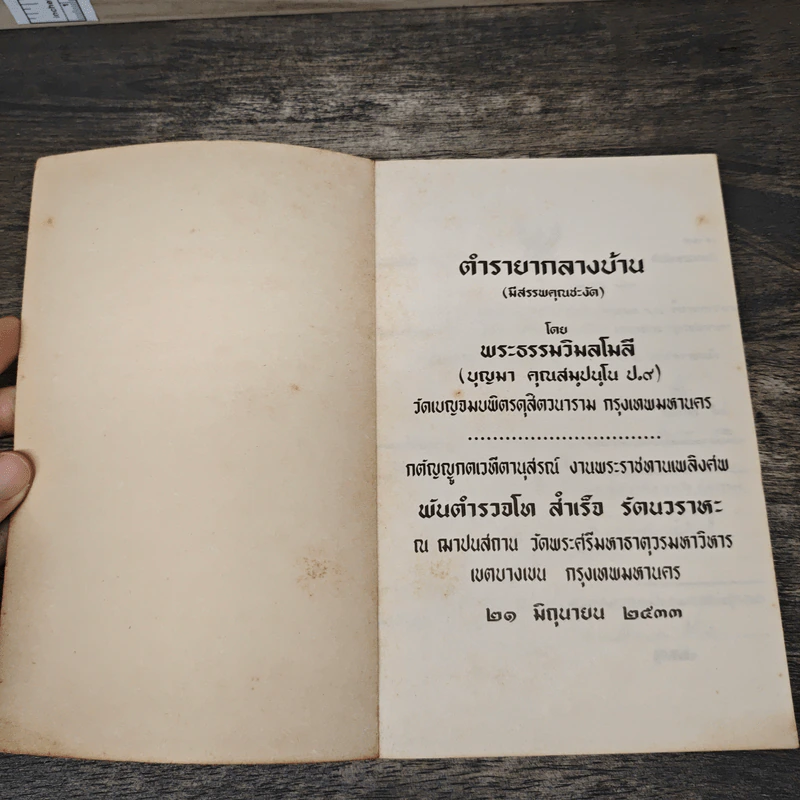 ตำรายากลางบ้าน
(มีสรรพคุณชะงัด)
โดย
พระธรรมวิมลโมลี
(บุญมา คุณสมฺปนฺโน ป.๙)
วัดเบญจมบพิตรดุสิตวนาราม กรุงเทพมหานคร
................................
กตัญญูกตเวทิตานุสรณ์ งานพระราชทานเพลิงศพ
พันตำรวจโท สำเร็จ รัตนวราหะ
ณ ฌาปนสถาน วัดพระศรีมหาธาตุวรมหาวิหาร
เขตบางเขน กรุงเทพมหานคร
๒๑ มิถุนายน ๒๕๓๓